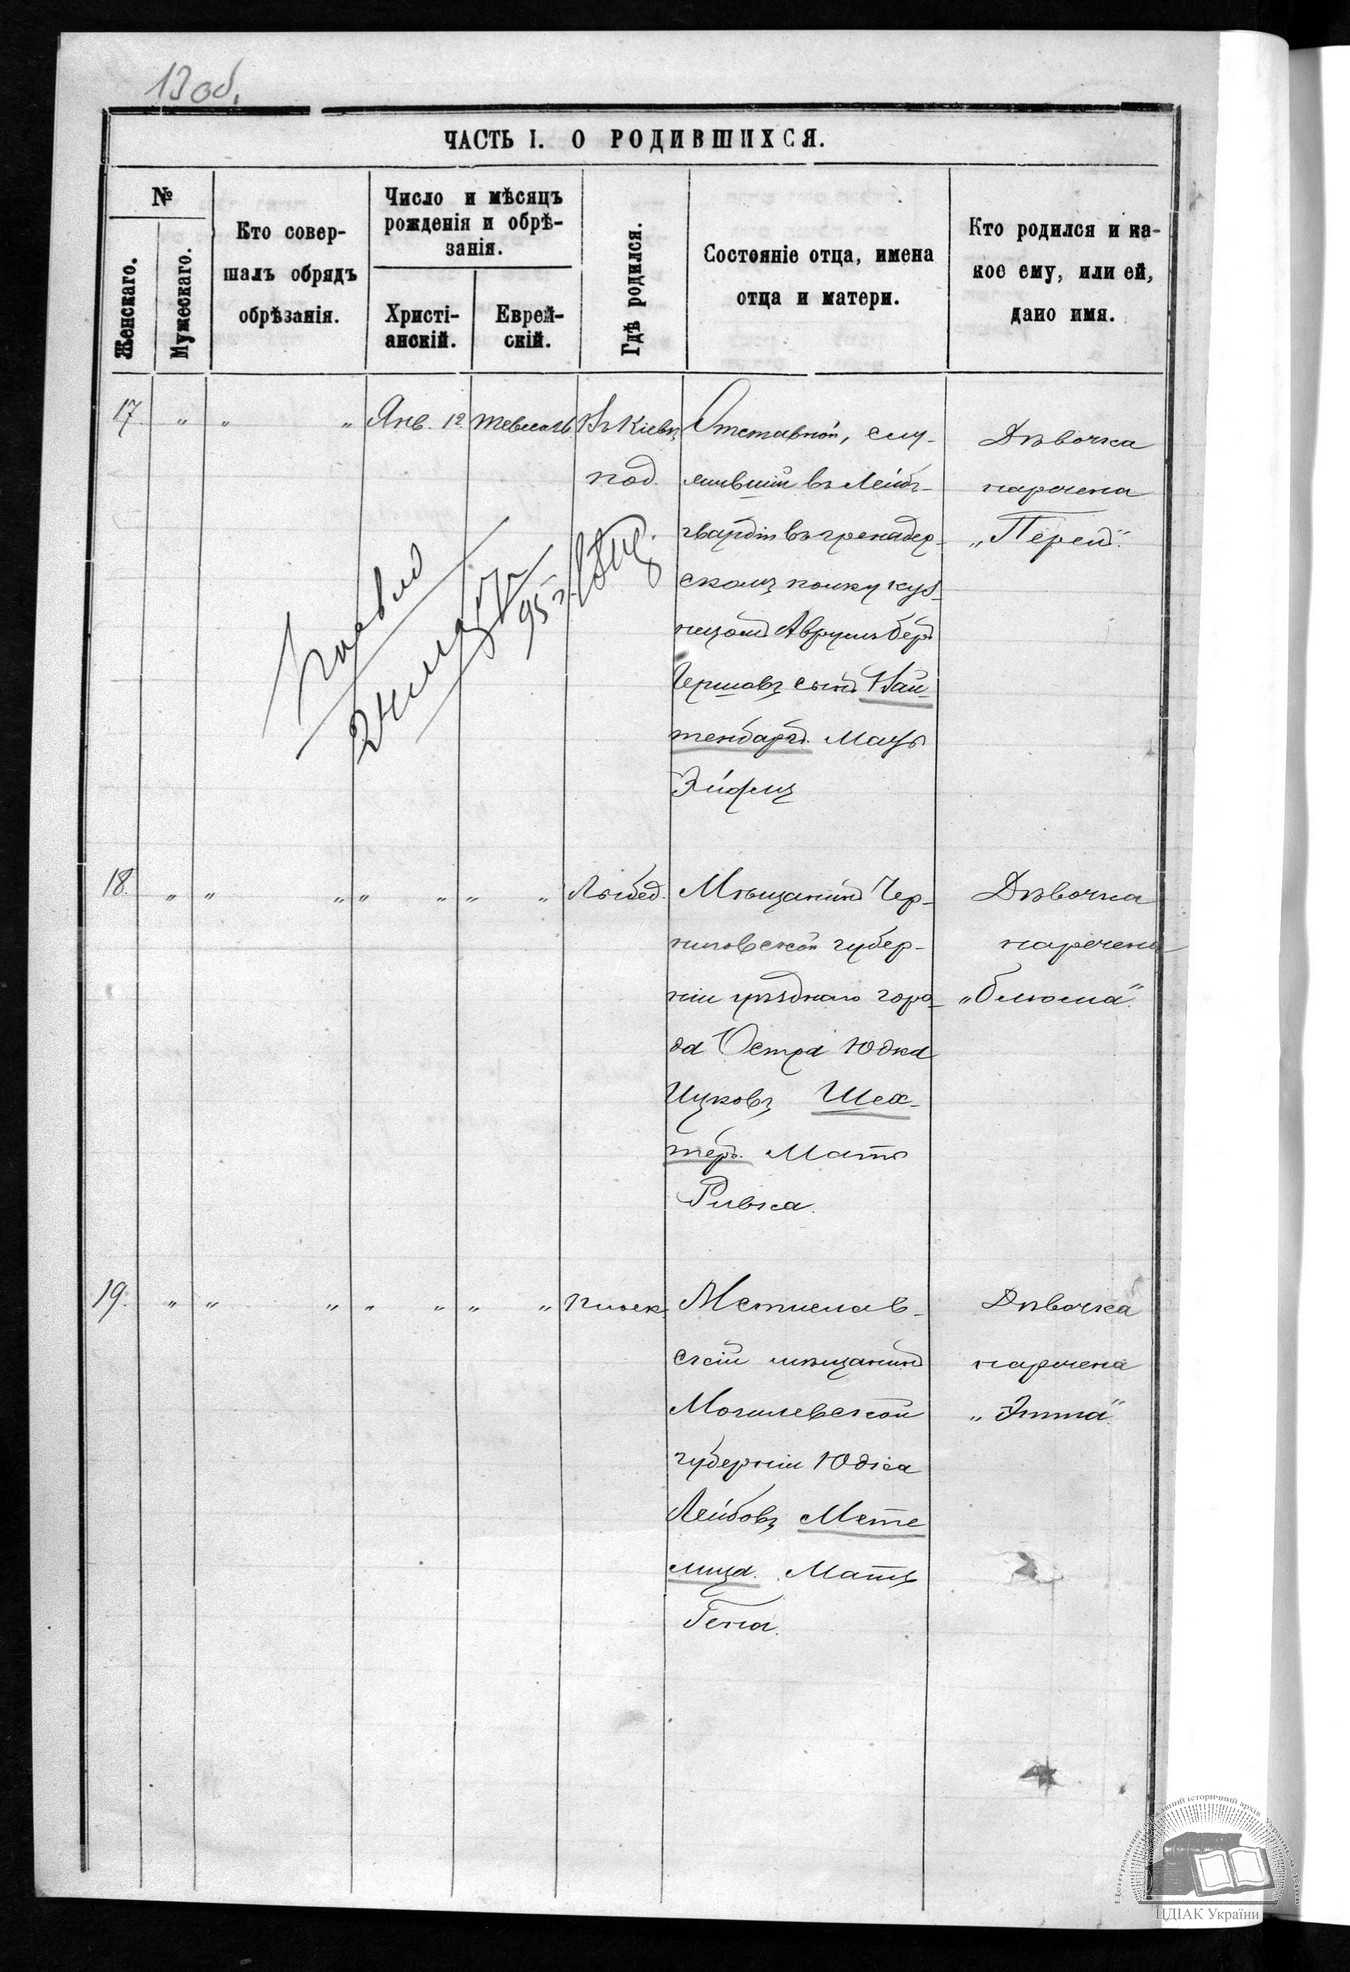 13 об.
ЧАСТЬ I. О РОДИВШИХСЯ.
№
Женскаго.
Мужескаго.
Кто совер-
шалъ обрядъ
обрѣзанія.
Число и мѣсяцъ
рожденія и обрѣ-
занія.
Христі-
анскій.
Еврей-
скій.
Гдѣ родился.
Состояніе отца, имена
отца и матери.
Кто родился и ка-
кое ему, или ей,
дано имя.
17 „ „ „ Янв. 12 Въ Кіевѣ
под.
Отставной, слу-
жившій въ Лейбъ-
гвардіи въ гренадер-
скомъ полку
Аврумъ Беръ
Гершовъ сынъ Вай-
тенбаргъ. Мать
Дѣвочка
наречена
„Перел".
95 г.
18 „ „ „ „ „ „ „ Лыбед.
Мѣщанинъ Чер-
ниговской губер-
ніи уѣзднаго горо-
да Остра Юдка
Ицковъ Шех-
теръ. Мать
Ривка.
Дѣвочка
наречена
„Блюма".
19. „ „ „ „ „ „ „ Плоск.
Мстислав-
скій мѣщанинъ
Могилевской
губерніи Юдка
Лейбовъ Мете
лица. Мать
Геня.
Дѣвочка
наречена
„Этта"
ЦДІАК України